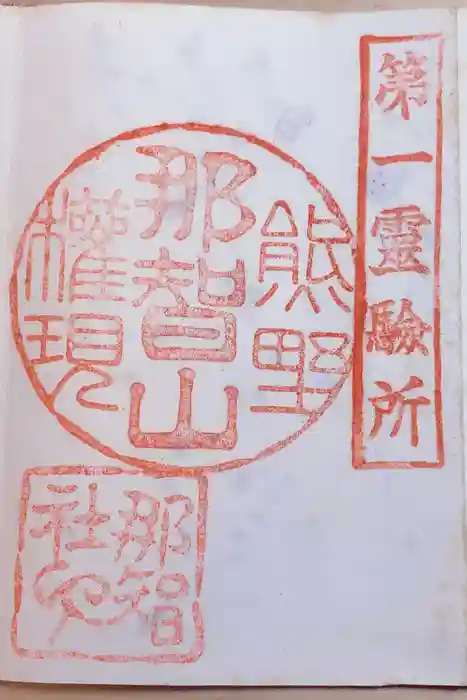 第一靈驗所
熊野
那智山
權現
那智
社